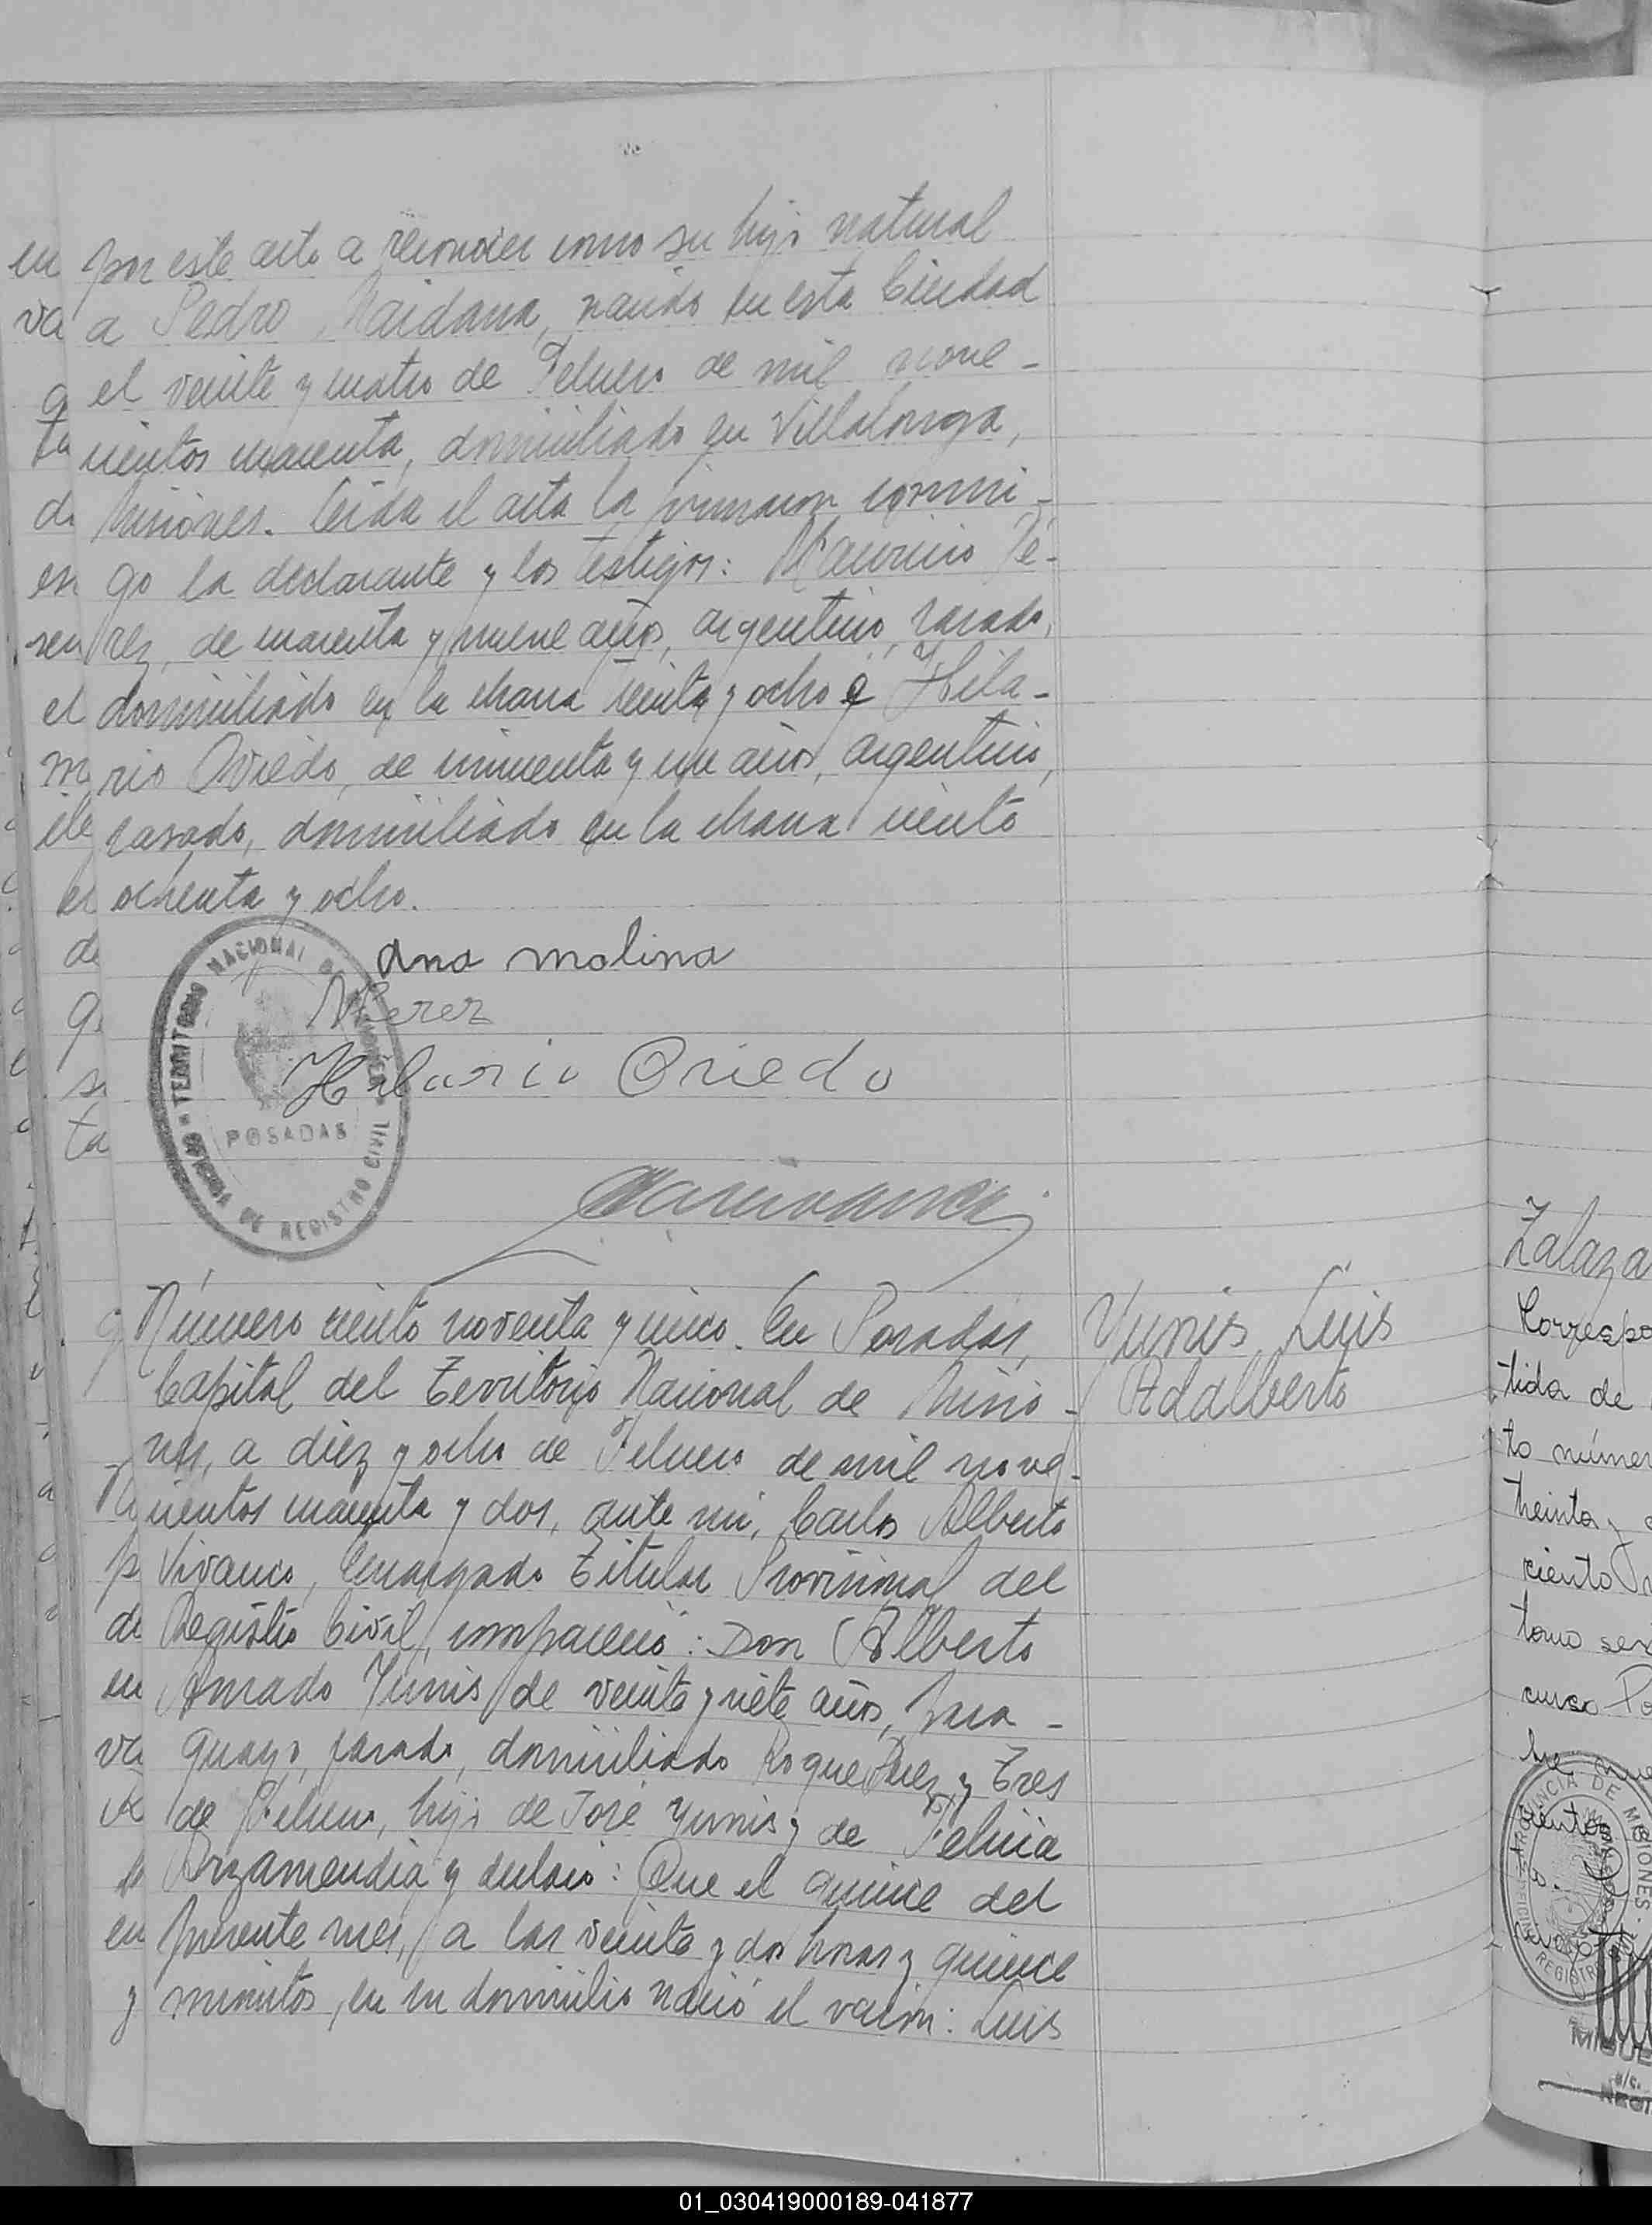 por este acto a reconocer como su hijo natural
a Pedro Maidana, nacido en esta Ciudad
el veinte y cuatro de Febrero de mil nove-
cientos cuarenta, domiciliado en Villalonga,
Misiones. Leída el acta la firmaron conmi-
go la declarante y los testigos: Mauricio Pé-
rez, de cuarenta y nueve años, argentino, casado,
domiciliado en la chacra treinta y ocho e Hila-
rio Oviedo, de cincuenta y un años, argentino,
casado, domiciliado en la chacra ciento
ochenta y ocho.
Ana Molina
MPerez
Hilario Oviedo
TERRITORIO NACIONAL DE MISIONES
POSADAS
OFICINA DE REGISTRO CIVIL
Número ciento noventa y cinco. En Posadas,
Capital del Territorio Nacional de Misio-
nes, a diez y ocho de Febrero de mil nove-
cientos cuarenta y dos, ante mi, Carlos Alberto
Vivanco, Encargado Titular Provisional del
Registro Civil, compareció: Don Alberto
Amado Yunis de veinte y siete años, para-
guayo, casado, domiciliado Roque Perez y Tres
de Febrero, hijo de José Yunis y de Felicia
Arzamendia y declaró: Que el quince del
presente mes, a las veinte y dos horas y quince
minutos, en su domicilio nació el varón: Luis
Yunis, Luis
Adalberto
Zalaza
Correspo
tida de
to númer
treinta y
ciento
tomo sex
curso Po
PROVINCIA DE MISIONES
MIGUE
01_030419000189-041877